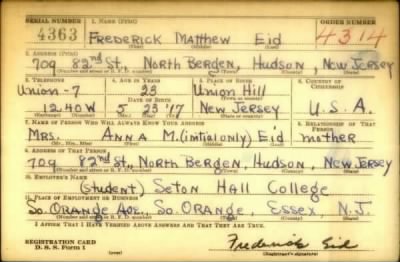 SERIAL NUMBER 1. NAME (Print) ORDER NUMBER
4363 FREDERICK Matthew Eid 4314
(First) (Middle) (Last)
2. ADDRESS (Print)
709 82nd St., North Bergen, Hudson, New Jersey
(Number and street or R. F. D. number) (Town) (County) (State)
3. TELEPHONE 4. AGE IN YEARS 5. PLACE OF BIRTH 6. COUNTRY OF CITIZENSHIP
Union-7 23 Union Hill
DATE OF BIRTH
1240W 5 23 '17 New Jersey U.S.A.
7. NAME OF PERSON WHO WILL ALWAYS KNOW YOUR ADDRESS 8. RELATIONSHIP OF THAT PERSON
Mrs. Anna M. (initial only) Eid mother
(Mr., Mrs., Miss) (First) (Middle) (Last)
9. ADDRESS OF THAT PERSON
709 82nd St., North Bergen, Hudson, New Jersey
(Number and street or R. F. D. number) (Town) (County) (State)
10. EMPLOYER'S NAME
(student) Seton Hall College
11. PLACE OF EMPLOYMENT OR BUSINESS
So. Orange Ave., So. Orange, Essex, N.J.
(Number and street or R. F. D. number) (Town) (County) (State)
I AFFIRM THAT I HAVE VERIFIED ABOVE ANSWERS AND THAT THEY ARE TRUE.
REGISTRATION CARD
D. S. S. Form 1
Frederick Eid
(Registrant's signature)